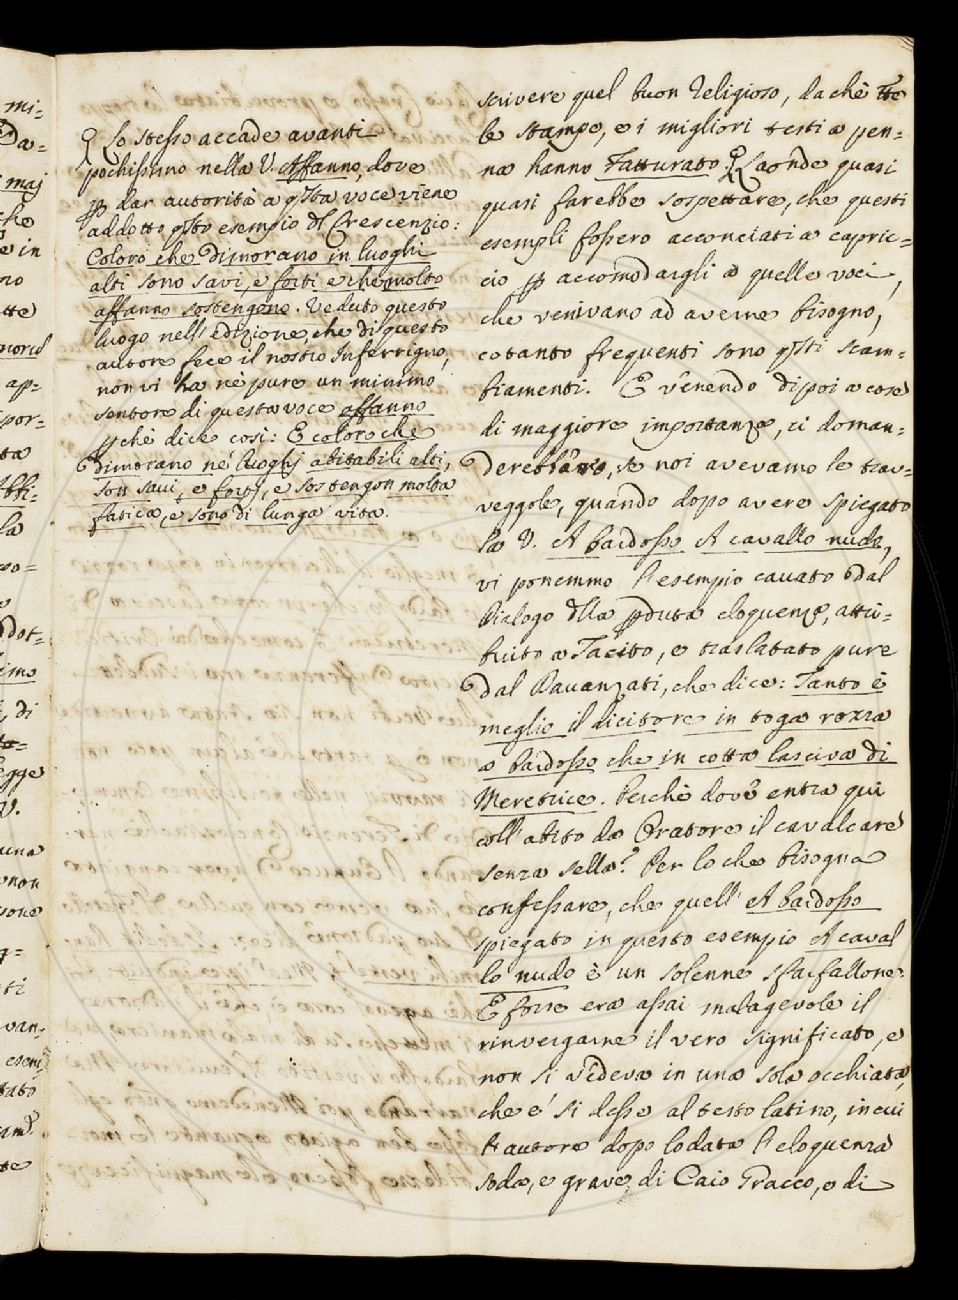 Lo stesso accade avanti
pochissimo nella V. Affanno, dove
p dar autorità a qsta voce viene
addotto qsto esempio dl Crescenzio:
Coloro che dimorano in luoghi
alti sono savi, e forti e che molto
affanno sostengono. Veduto questo
luogo nell'edizione, che di questo
autore fece il nostro Inferrigno,
non vi ha nè pure un minimo
sentore di questa voce affanno
pchè dice così: E coloro che
dimorano ne' luoghi abitabili alti,
son savi, e forti, e sostengon molta
fatica, e sono di lunga vita.
scrivere quel buon Religioso, da chè tte
le stampe, e i migliori testi a pen-
na hanno Fatturato. Laonde quasi
quasi farebbe sospettare, che questi
esempli fossero acconciati a capric-
cio p accomodargli a quelle voci,
che venivano ad averne bisogno,
cotanto frequenti sono qsti scam-
biamenti. E venendo dipoi a cose
di maggiore importanza, ci doman-
derebbero, se noi avevamo le trav-
veggole, quando dopo avere spiegato
la V. A bardosso A cavallo nudo,
vi ponemmo l'esempio cavato dal
Dialogo dlla pduta eloquenza, attri-
buito a Tacito, e traslatato pure
dal Davanzati, che dice: Tanto è
meglio il dicitore in toga rozza
a bardosso che in cotta lasciva di
Meretrice. Perchè dove entra qui
coll'abito da Oratore il cavalcare
senza sella? Per lo che bisogna
confessare, che quell'A bardosso
spiegato in questo esempio A caval
lo nudo è un solenne sfarfallone.
E forse era assai malagevole il
rinvergarne il vero significato, e
non si vedeva in una sola occhiata,
che e' si desse al testo latino, in cui
l'autore dopo lodata l'eloquenza
soda, e grave, di Caio Gracco, e di